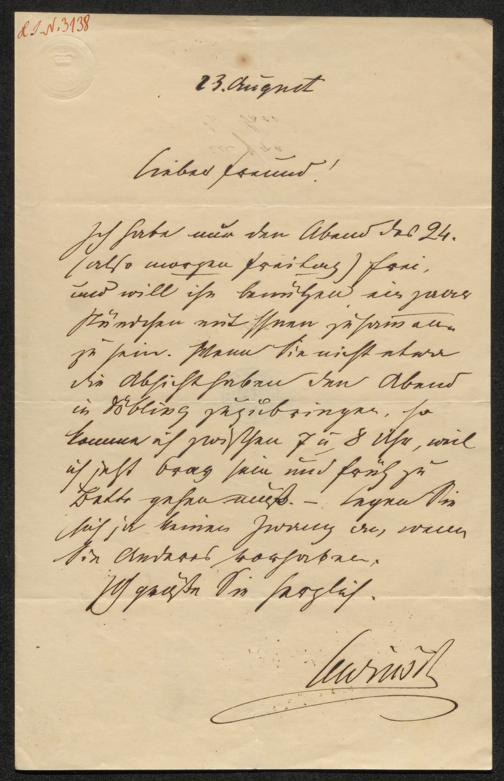 I. N. 3138
23. August
Lieber Freund!
Ich habe nur den Abend des 24.
(also morgen Freitag) frei,
und will ihn benützen ein paar
Stündchen mit Ihnen zusammen
zu sein. Wenn Sie nicht etwa
die Absicht haben den Abend
in Döbling zuzubringen, so
komme ich zwischen 7 u 8 Uhr, weil
ich jetzt brav sein und früh zu
Bette gehen muß. – Legen Sie
sich ja keinen Zwang an, wenn
Sie Anderes vorhaben.
Ich grüße Sie herzlich.